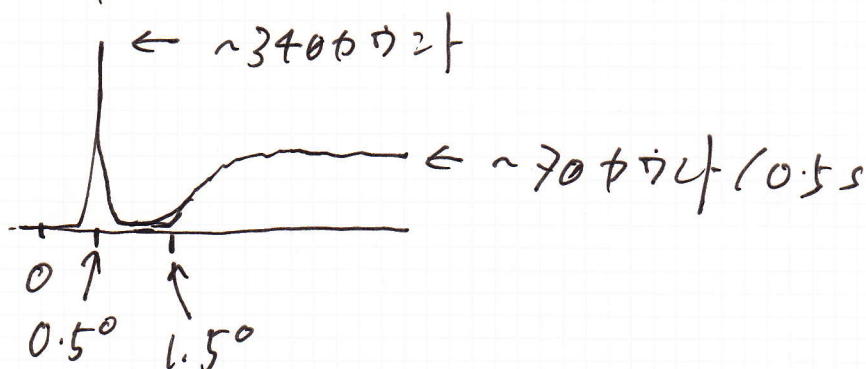 ← ~340カウント
← ~70カウント/0.5s
0
0.5°
1.5°